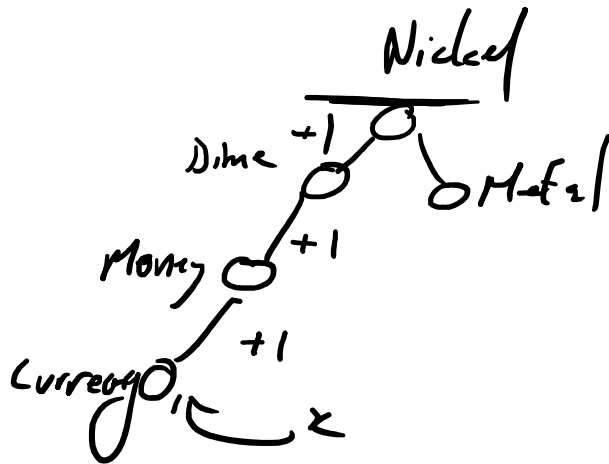 Nickel
+1
Dime
Metal
+1
Money
+1
Currency
x